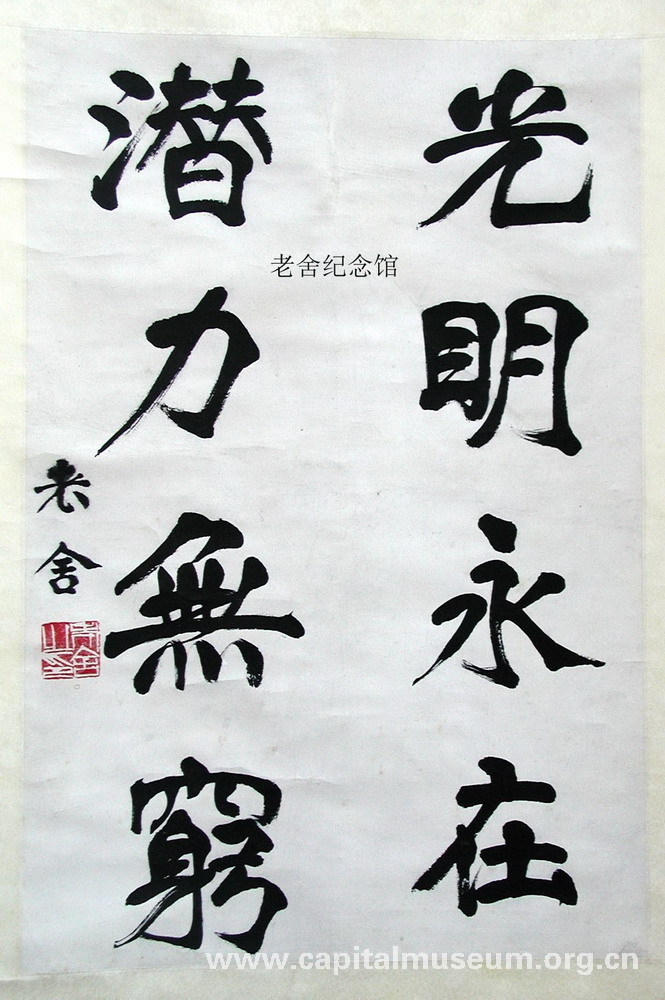 光明永在
潜力無窮
老舍
老舍之印
老舍纪念馆
www.capitalmuseum.org.cn